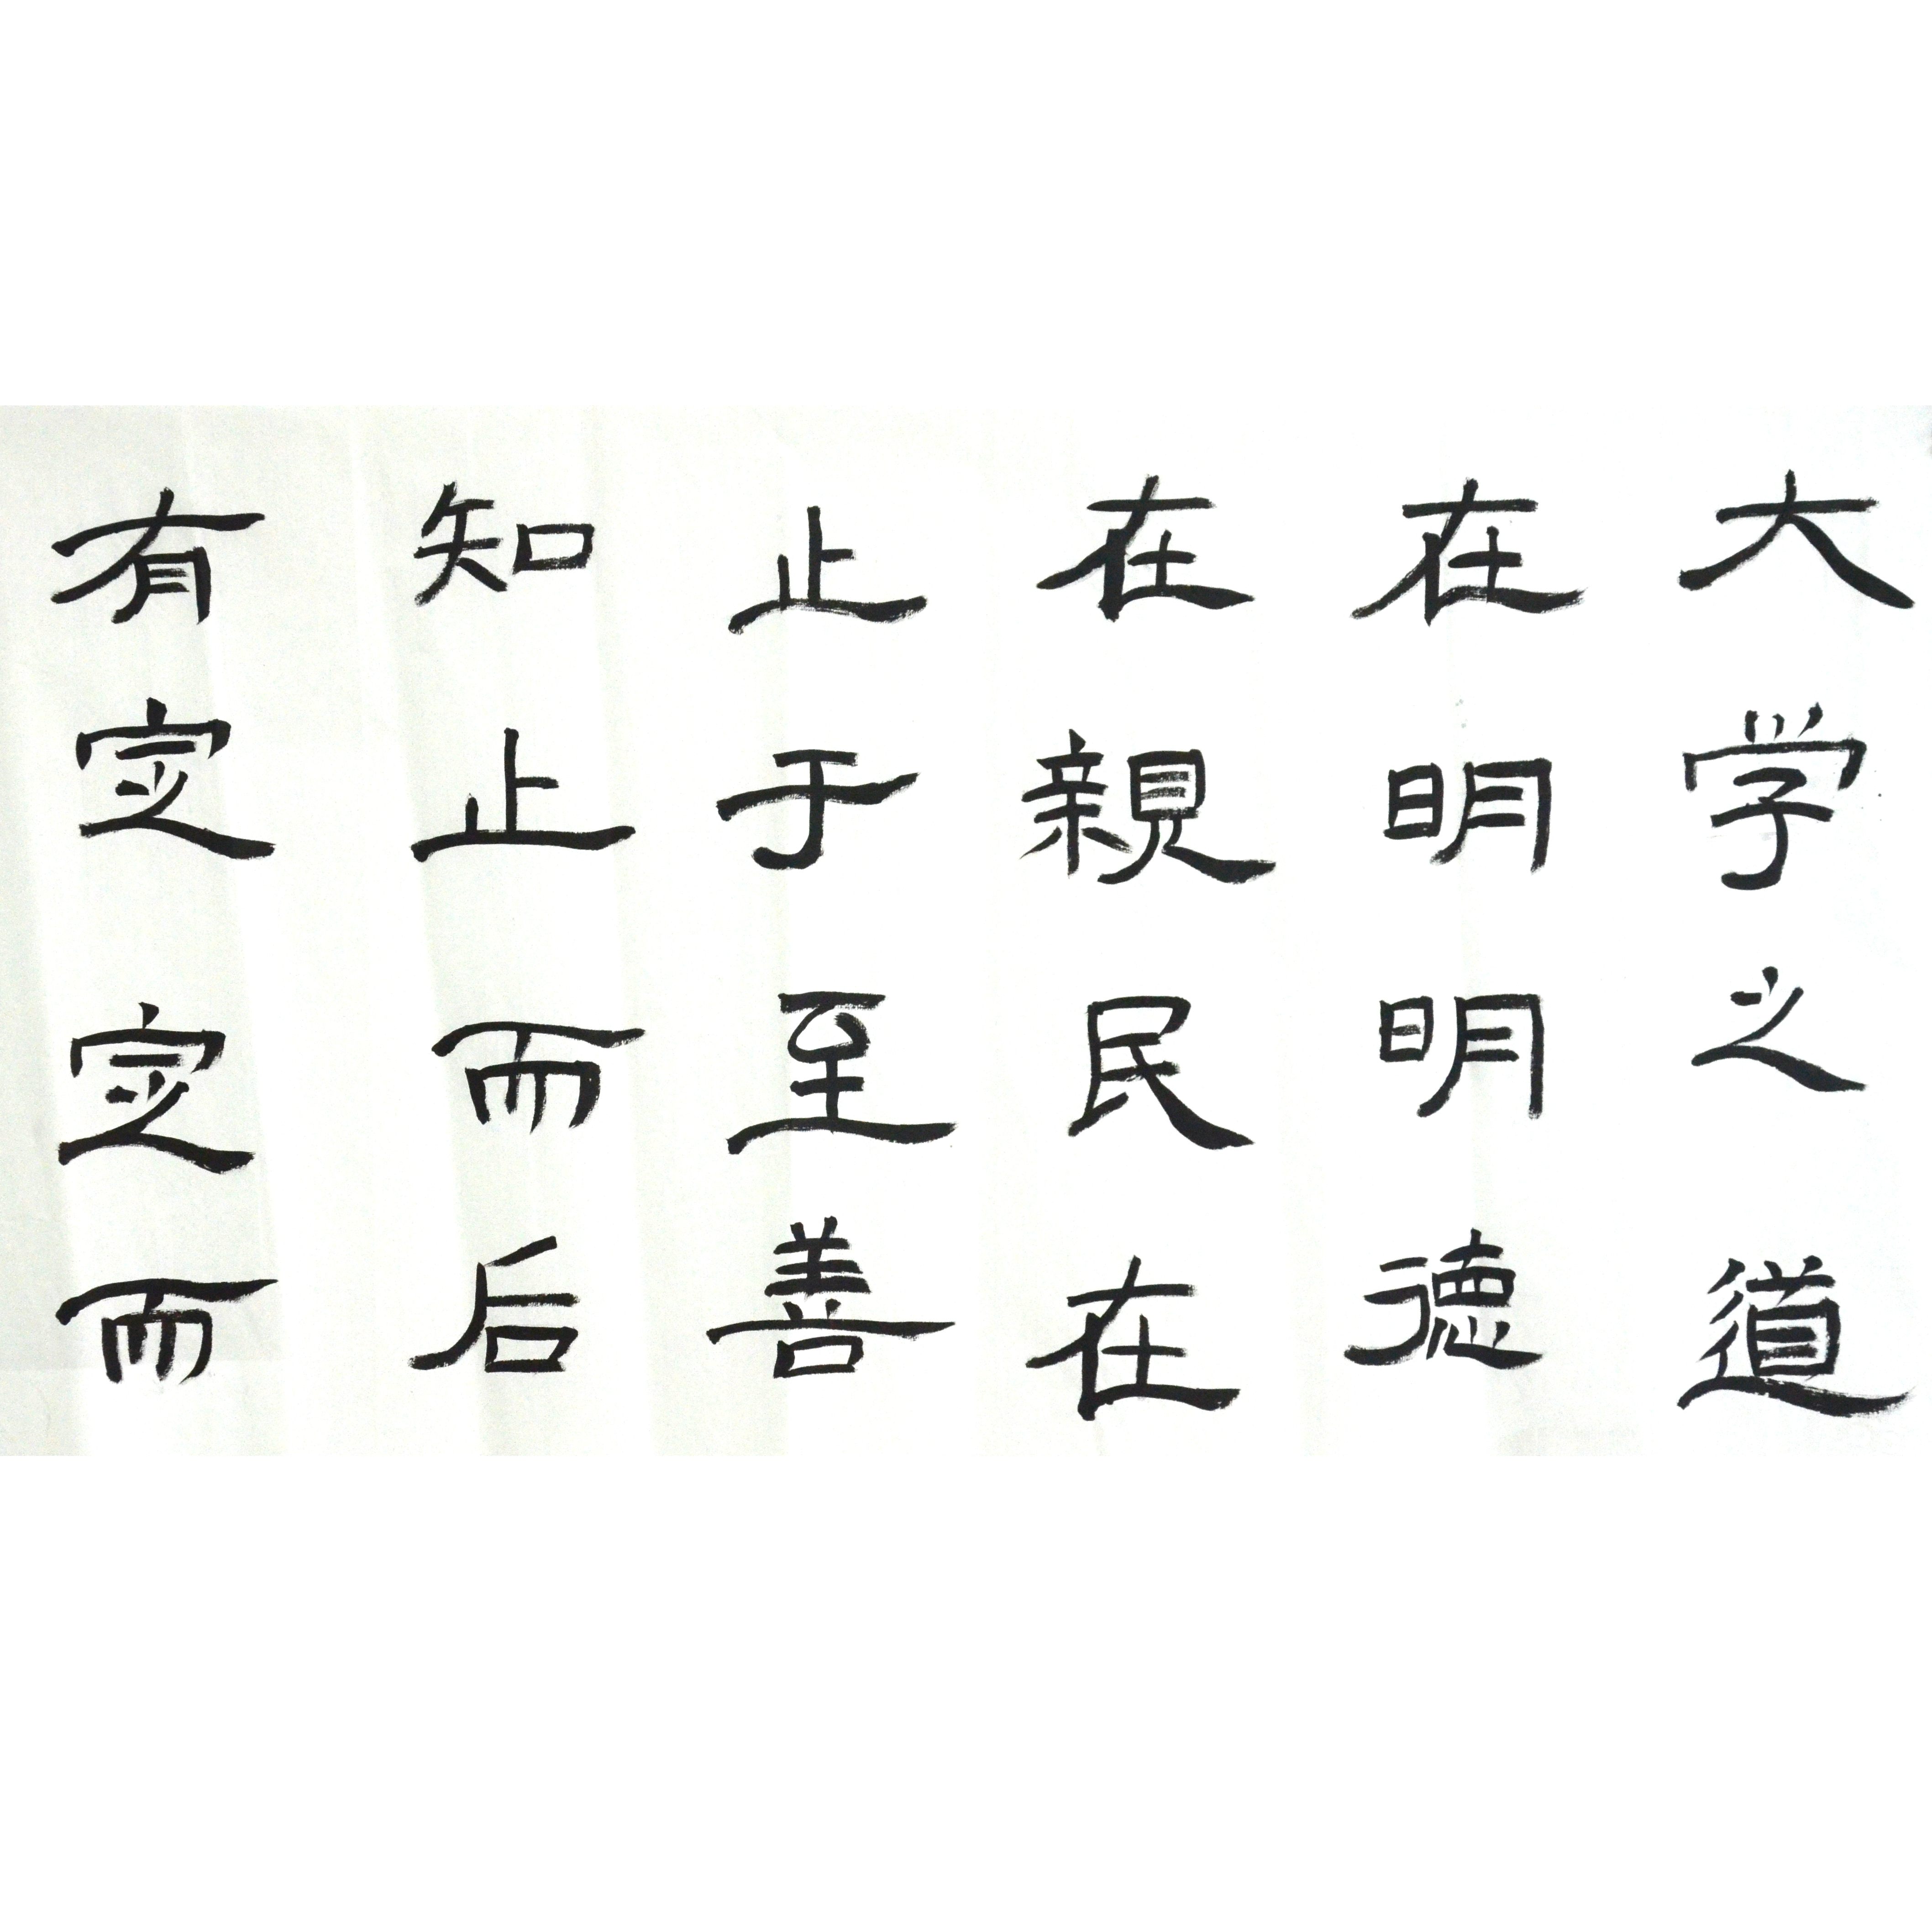 大学之道
在明明德
在親民在
止于至善
知止而后
有定定而